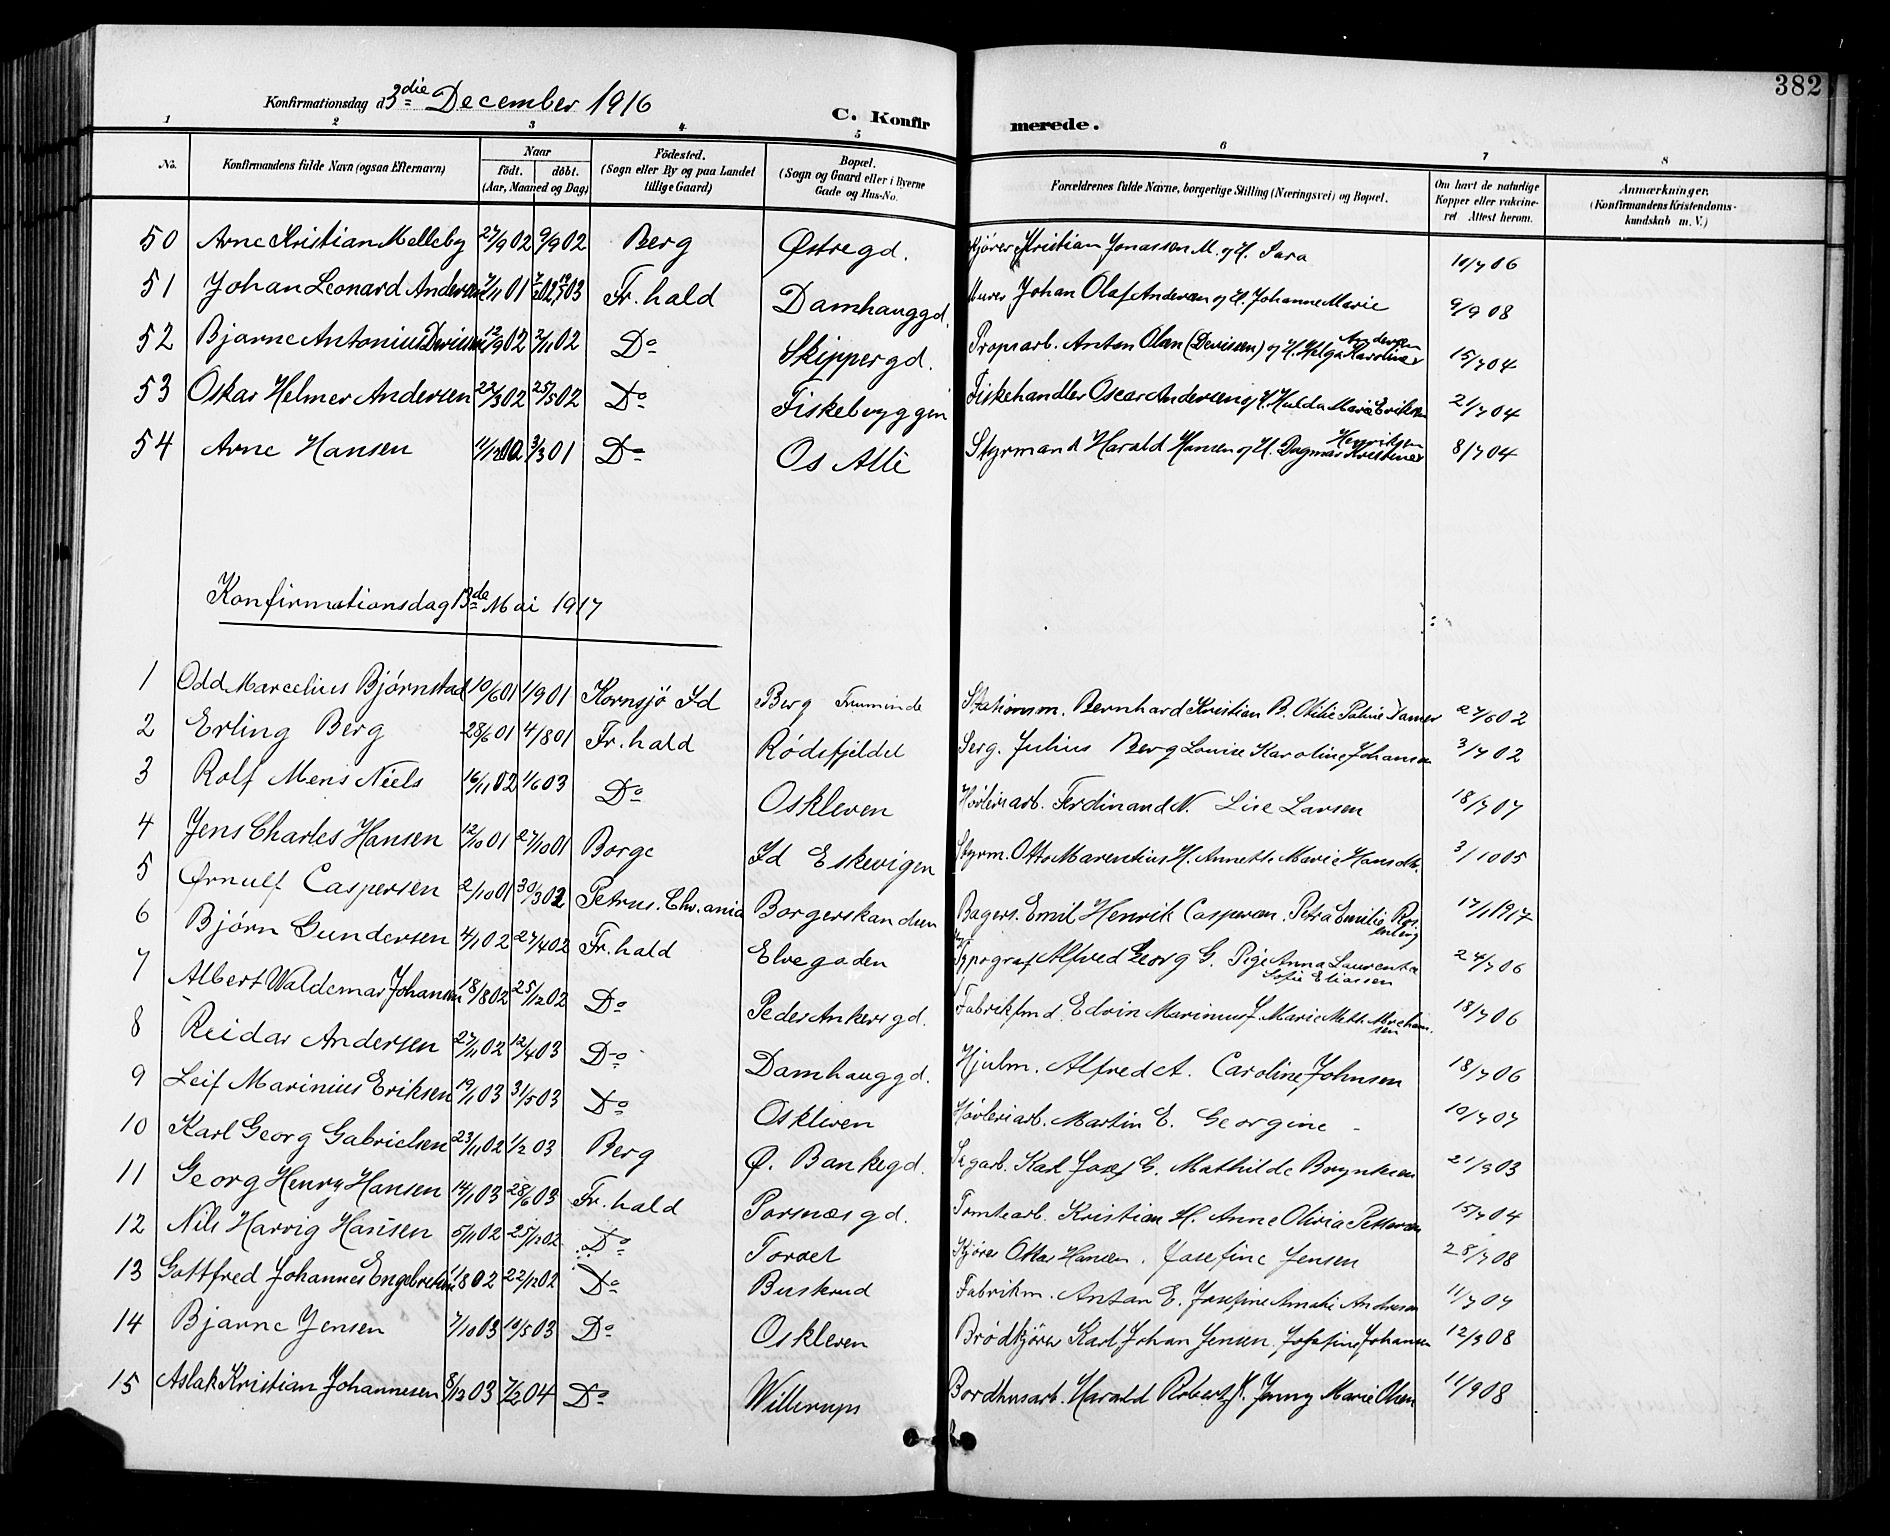 382
Konfirmationsdag d. 3die December 1916
C. Konfirmerede.
1 2 3 4 5 6 7 8
No. Konfirmandens fulde Navn (ogsaa Efternavn) Naar født. døbt. (Aar, Maaned og Dag) Fødested. (Sogn eller By og paa Landet tillige Gaard) Bopæl. (Sogn og Gaard eller i Byerne Gade og Hus-No. Forældrenes fulde Navne, borgerlige Stilling (Næringsvei) og Bopæl. Om havt de naturlige Kopper eller vakcineret Attest herom. Anmærkninger. (Konfirmandens Kristendomskundskab m. V.)
50 Arne Kristian Melleby 27/9 02 9/9 02 Berg Østregd. Kjører Kristian Jonassen M. og H. Sara 10/7 06
51 Johan Leonard Andersen 7/11 01 Fr.hald Damhauggd. Murer Johan Olaf Andersen og H. Johanne Marie 9/9 08
52 Bjarne Antonius 12/9 02 2/11 02 Do Skippergd. Anton Olsen og H. Helga Karoline Andersen 15/7 04
53 Oskar Helmer Andersen 22/3 02 25/5 02 Do Fiskebryggen Fiskehandler Oscar Andersen og H. Hulda Marie Eriksen 21/7 04
54 Arne Hansen 3/3 01 Do Os Allé Styrmand Harald Hansen og H. Dagmar Kristine Henriksen 8/7 04
Konfirmationsdag 13de Mai 1917
1 Odd Marcelius Bjørnstad 10/6 01 1/9 01 Kornsjø Id Berg Stationsm. Bernhard Kristian B. Otilie 27/6 02
2 Erling Berg 28/6 01 4/8 01 Fr.hald Rødsfjeldet Serg. Julius Berg Louise Karoline Johansen 3/7 02
3 Rolf Mens Niels 16/11 02 1/6 03 Do Oskleven Høvleriarb. Ferdinand N. Lise Larsen 18/7 07
4 Jens Charles Hansen 12/10 01 27/10 01 Borge Id Eskevigen Styrm. Otto Marentius H. Annette Marie Hansdtr. 3/10 05
5 Ørnulf Caspersen 2/10 01 30/3 02 Petrus. Chr.ania Borgerskandsen Bagers. Emil Henrik Caspersen. Petra Emilie Rosenberg 17/1 1917
6 Bjørn Gundersen 4/1 02 27/4 02 Fr.hald Elvegaden Typograf Alfred Georg G. Pige Anna Laurentse Sofie Eliassen 24/7 06
7 Albert Waldemar Johansen 18/8 02 25/12 02 Do Peder Ankersgd. Fabrikfmd. Edvin Marinius J. Marie Mathilde 18/7 06
8 Reidar Andersen 27/11 02 12/4 03 Do Damhauggd. Hjulm. Alfred A. Caroline Johnsen 18/7 06
9 Leif Marinius Eriksen 19/1 03 31/5 03 Do Oskleven Høvleriarb. Martin E. Georgine - 10/7 07
10 Karl Georg Gabrielsen 23/11 02 1/2 03 Berg Ø. Bankegd. Karl Josef G. Mathilde Brynksen 21/9 03
11 Georg Henry Hansen 14/1 03 28/6 03 Fr.hald Porsnæsgd. Tomtearb. Kristian H. Anne Olivia Pettersen 15/7 04
12 Nils Harvig Hansen 5/11 02 25/12 02 Do Torvet Kjører Otto Hansen. Josefine Jensen 28/7 08
13 Gottfred Johannes Engebretsen 1/8 02 22/12 02 Do Buskrud Fabrikm. Anton E. Josefine Amalie Andersen 11/7 07
14 Bjarne Jensen 7/10 03 10/5 03 Do Oskleven Brødkjører Karl Johan Jensen. Josefine Johansen 12/9 08
15 Aslak Kristian Johannesen 8/12 03 7/2 04 Do Willerups Bordhusarb. Harald Robert J. Jenny Marie Olsen 11/9 08